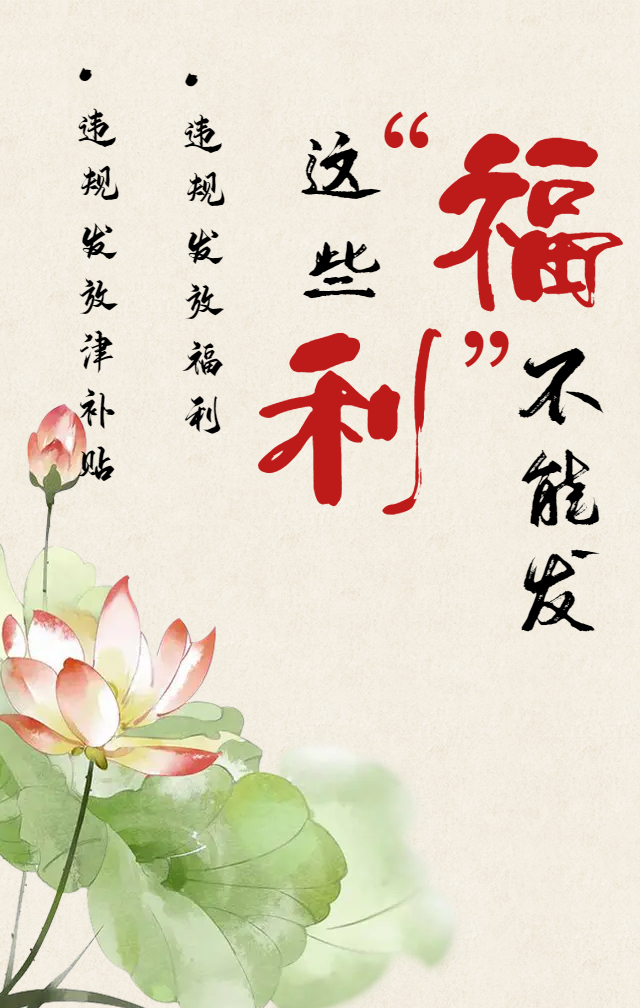 这些
“福利”
不能发
• 违规发放福利
• 违规发放津补贴